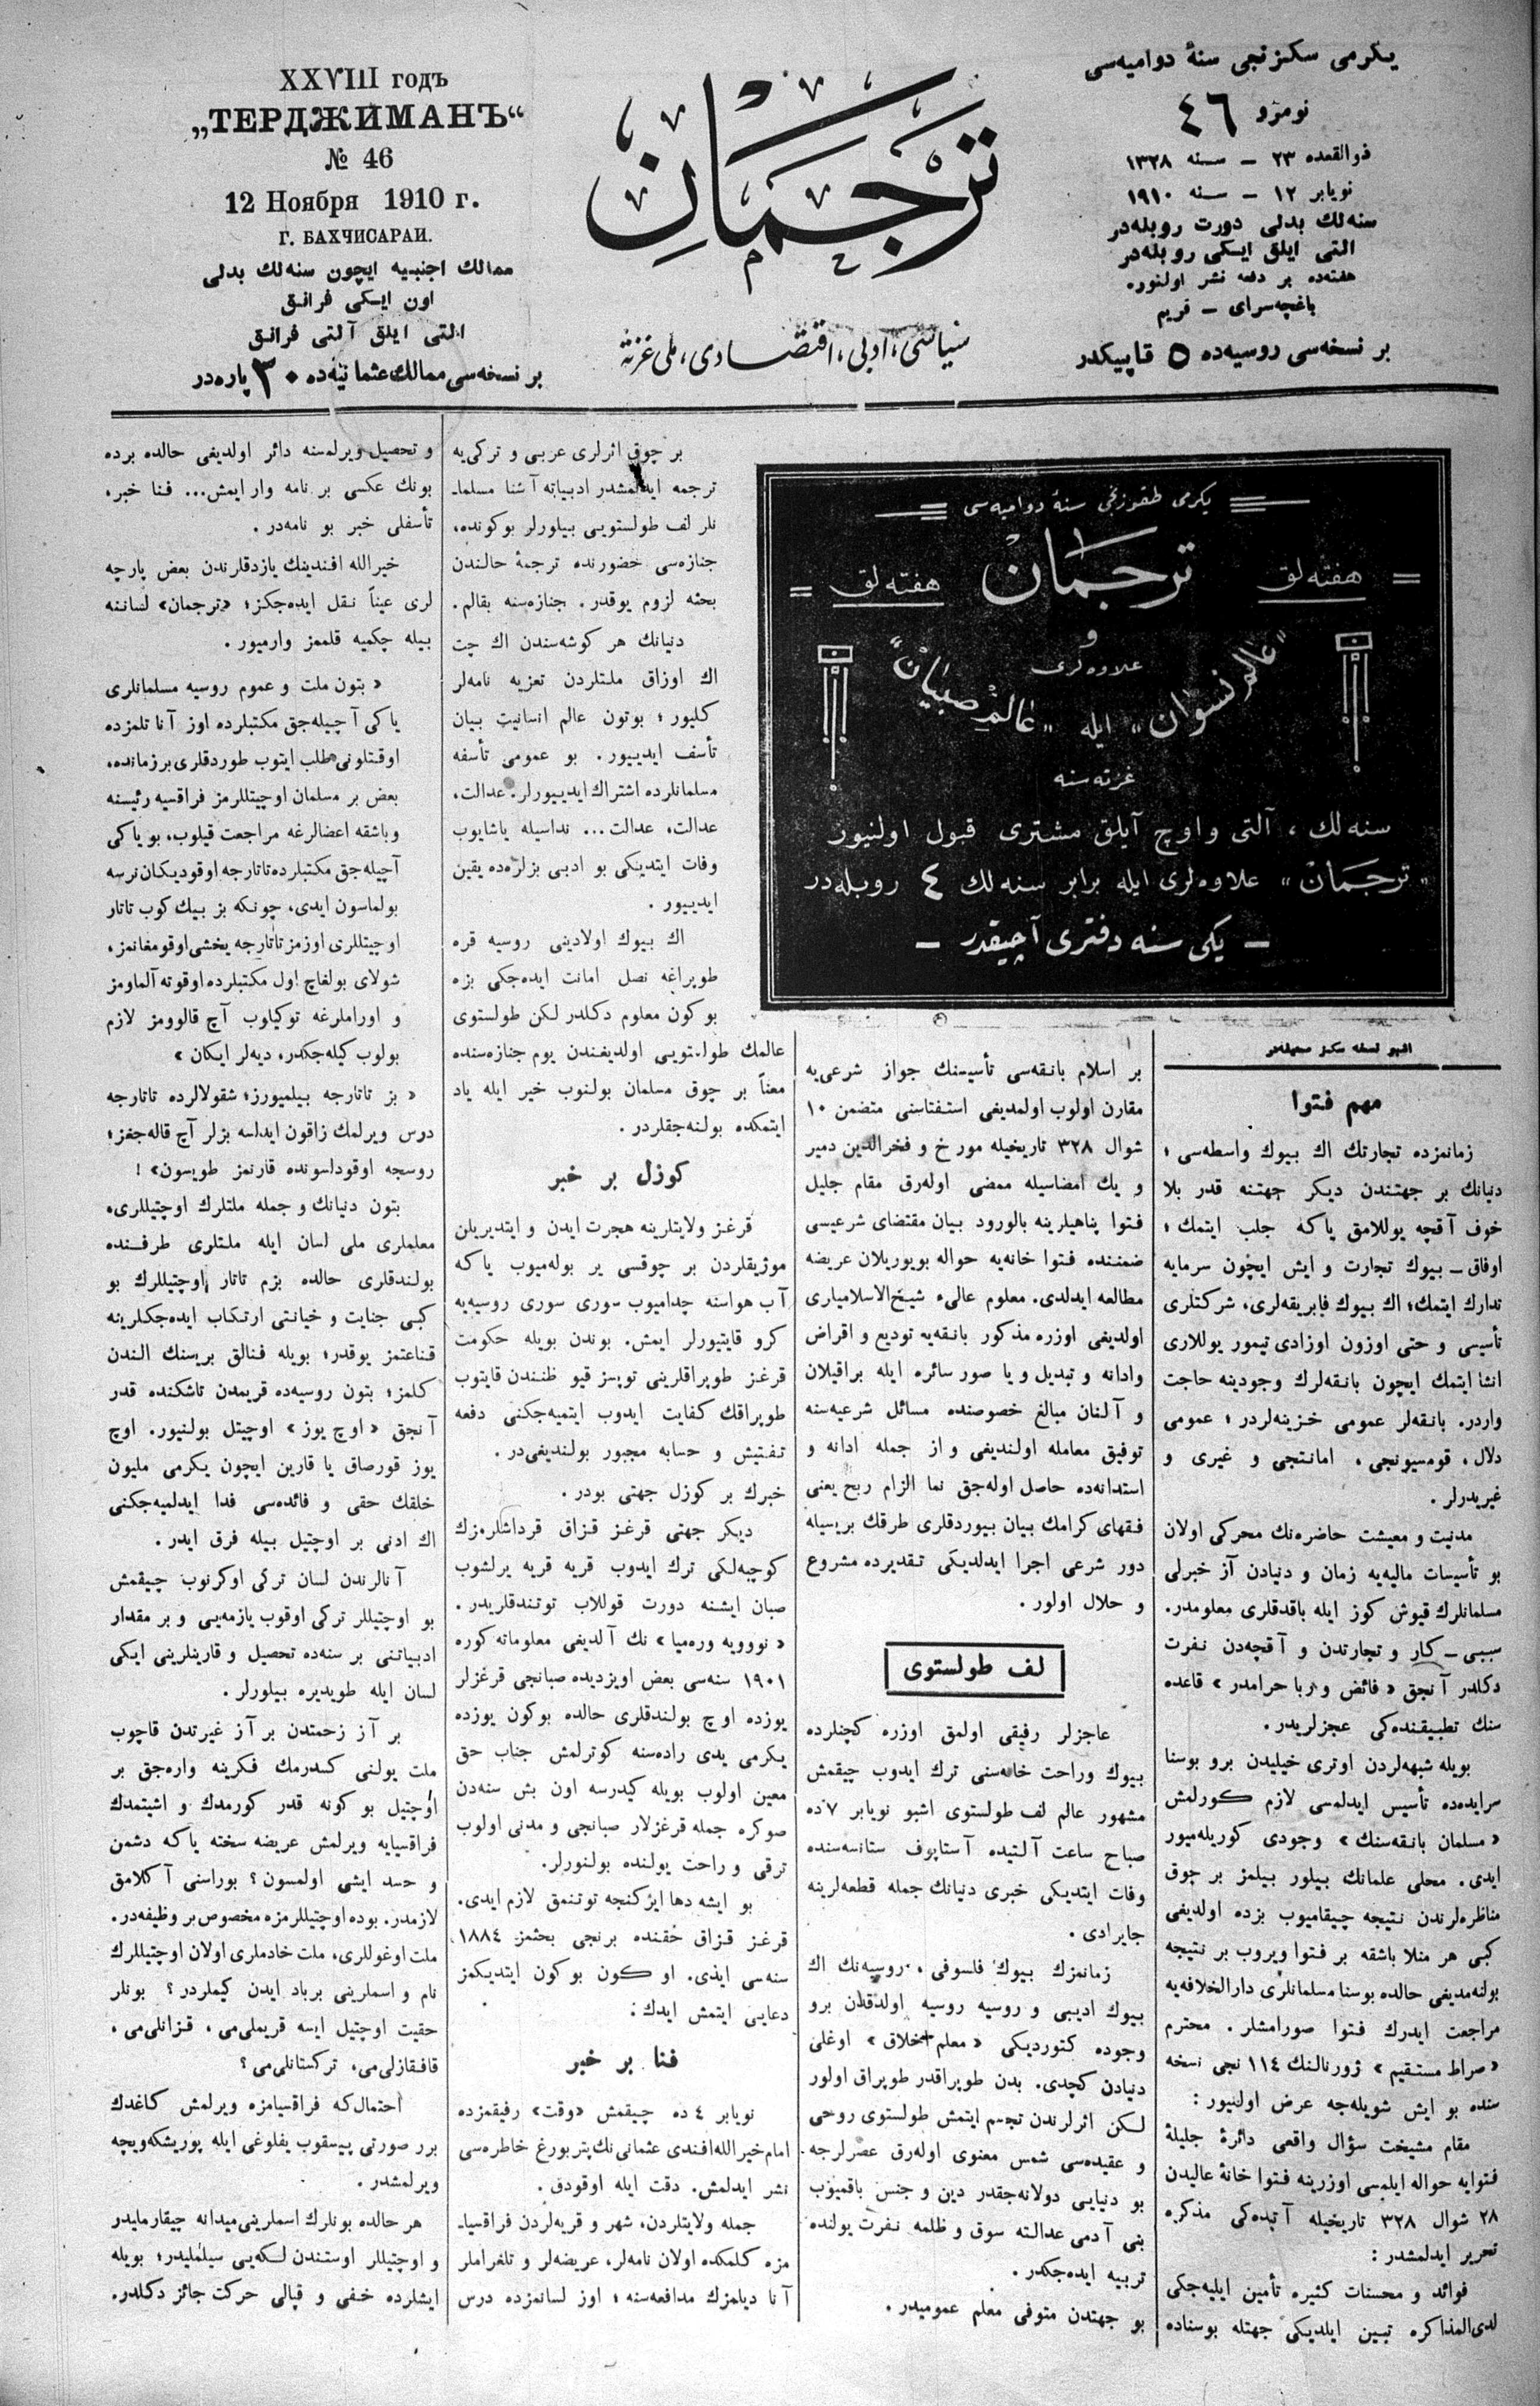 XXVIII годъ
„ТЕРДЖИМАНЪ“
№ 46
12 Ноября 1910 г.
Г. БАХЧИСАРАИ.
ممالك اجنبیه ایچون سنه‌لك بدلی
اون ایكی فرانق
التی ایلق آلتی فرانق
بر نسخه‌سی ممالك عثمانیه‌ده ٣٠ پاره‌در
ترجمان
سیاسی، ادبی، اقتصادی، ملی غزته
یكرمی سكزنجی سنهٔ دوامیه‌سی
نومرو ٤٦
ذوالقعده ٢٣ – سنه ١٣٢٨
نویابر ١٢ – سنه ١٩١٠
سنه‌لك بدلی دورت روبله‌در
التی ایلق ایكی روبله‌در
هفته‌ده بر دفعه نشر اولنور.
باغچه‌سرای – قریم
بر نسخه‌سی روسیه‌ده ٥ قاپیكدر
یكرمی طقوزنجی سنهٔ دوامیه‌سی
هفته‌لق ترجمان هفته‌لق
و
علاوه‌لری
„عالم نسوان“ ایله „عالم صبیان“
غزته سنه
سنه‌لك ، آلتی و اوچ آیلق مشتری قبول اولنیور
„ترجمان“ علاوه‌لری ایله برابر سنه‌لك ٤ روبله‌در
– یكی سنه دفتری آچیقدر –
اشبو نسخه سكز صحیفه‌در
مهم فتوا
زمانمزده تجارتك اك بیوك واسطه‌سی ؛
دنیانك بر جهتندن دیكر جهتنه قدر بلا
خوف آقچه یوللامق یا كه جلب ایتمك ؛
اوفاق – بیوك تجارت و ایش ایچون سرمایه
تدارك ایتمك؛ اك بیوك فابریقه‌لری، شركتلری
تأسیسی و حتی اوزون اوزادی تیمور یوللاری
انشا ایتمك ایچون بانقه‌لرك وجودینه حاجت
واردر. بانقه‌لر عمومی خزینه‌لردر ؛ عمومی
دلال ، قومسیونجی ، امانتجی و غیری و
غیریدرلر .
مدنیت و معیشت حاضره‌نك محركی اولان
بو تأسیسات مالیه‌یه زمان و دنیادن آز خبرلی
مسلمانلرك قیوش كوز ایله باقدقلری معلومدر.
سببی – كار و تجارتدن و آقچه‌دن نفرت
دكلدر آنجق « فائض و ربا حرامدر » قاعده
سنك تطبیقنده‌كی عجزلریدر.
بویله شبهه‌لردن اوتری خیلیدن برو بوسنا
سرایده‌ده تأسیس ایدلمسی لازم كورلمش
« مسلمان بانقه‌سنك » وجودی كوریله‌میور
ایدی . محلی علمانك بیلور بیلمز بر چوق
مناظره‌لرندن نتیجه چیقامیوب بزده اولدیغی
كبی هر منلا باشقه بر فتوا ویروب بر نتیجه
بولنه‌مدیغی حالده بوسنا مسلمانلری دارالخلافه‌یه
مراجعت ایدرك فتوا صورامشلر . محترم
« صراط مستقیم » ژورنالنك ١١٤ نجی نسخه
سنده بو ایش شویله‌جه عرض اولنیور :
مقام مشیخت سؤال واقعی دائرهٔ جلیلهٔ
فتوایه حواله ایلمسی اوزرینه فتوا خانهٔ عالیدن
٢٨ شوال ٣٢٨ تاریخیله آتیده‌كی مذكره
تحریر ایدلمشدر :
فوائد و محسنات كثیره تأمین ایلیه‌جكی
لدی‌المذاكره تبین ایلدیكی جهتله بوسناده
بر اسلام بانقه‌سی تأسیسنك جواز شرعی‌یه
مقارن اولوب اولمدیغی استفتاسنی متضمن ١٠
شوال ٣٢٨ تاریخیله مورخ و فخرالدین دمیر
و یك امضاسیله ممضی اوله‌رق مقام جلیل
فتوا پناهیلرینه بالورود بیان مقتضای شرعیسی
ضمننده فتوا خانه‌یه حواله بویوریلان عریضه
مطالعه ایدلدی. معلوم عالیء شیخ‌الاسلامیاری
اولدیغی اوزره مذكور بانقه‌یه تودیع و اقراض
وادانه و تبدیل و یا صور سائره ایله براقیلان
و آلنان مبالغ خصوصنده مسائل شرعیه‌سنه
توفیق معامله اولندیغی و از جمله ادانه و
استدانه‌ده حاصل اوله‌جق نما الزام ربح یعنی
فقهای كرامك بیان بیوردقلری طرقك بریسیله
دور شرعی اجرا ایدلدیكی تقدیرده مشروع
و حلال اولور .
لف طولستوی
عاجزلر رفیقی اولمق اوزره كچنلرده
بیوك وراحت خانه‌سنی ترك ایدوب چیقمش
مشهور عالم لف طولستوی اشبو نویابر ٧ده
صباح ساعت آلتیده آستاپوف ستانسه‌سنده
وفات ایتدیكی خبری دنیانك جمله قطعه‌لرینه
جایرادی .
زمانمزك بیوك فلسوفی ، روسیه‌نك اك
بیوك ادیبی و روسیه روسیه اولدقدن برو
وجوده كتوردیكی « معلم اخلاق » اوغلی
دنیادن كچدی. بدن طوپراقدر طوپراق اولور
لكن اثرلرندن تجسم ایتمش طولستوی روحی
و عقیده‌سی شمس معنوی اوله‌رق عصرلرجه
بو دنیایی دولانه‌جقدر دین و جنس باقمیوب
بنی آدمی عدالته سوق و ظلمه نفرت یولنده
تربیه ایده‌جكدر .
بو جهتدن متوفی معلم عمومیدر .
بر چوق اثرلری عربی و تركی‌یه
ترجمه ایدلمشدر ادبیاته آشنا مسلما-
نلر لف طولستویی بیلورلر بوكونده،
جنازه‌سی حضورنده ترجمهٔ حالندن
بحثه لزوم یوقدر . جنازه‌سنه بقالم .
دنیانك هر كوشه‌سندن اك چت
اك اوزاق ملتلردن تعزیه نامه‌لر
كلیور ؛ بوتون عالم انسانیت بیان
تأسف ایدییور . بو عمومی تأسفه
مسلمانلرده اشتراك ایدییورلر. عدالت،
عدالت، عدالت ... نداسیله یاشایوب
وفات ایتدیكی بو ادبی بزلره‌ده یقین
ایدییور .
اك بیوك اولادینی روسیه قره
طوپراغه نصل امانت ایده‌جكی بزه
بوكون معلوم دكلدر لكن طولستوی
عالمك طولستویی اولدیغندن یوم جنازه‌سنده
معناً بر چوق مسلمان بولنوب خیر ایله یاد
ایتمكده بولنه‌جقلردر .
كوزل بر خبر
قرغز ولایتلرینه هجرت ایدن و ایتدیریلن
موژیقلردن بر چوقسی یر بوله‌میوب یا كه
آب هواسنه چدامیوب سوری سوری روسیه‌یه
كرو قایتیورلر ایمش. بوندن بویله حكومت
قرغز طوپراقلرینی توپسز قیو ظنندن قایتوب
طوپراقك كفایت ایدوب ایتمیه‌جكنی دفعه
تفتیش و حسابه مجبور بولندیغی‌در .
خبرك بر كوزل جهتی بودر .
دیكر جهتی قرغز قزاق قرداشلره‌زك
كوچبه‌لكی ترك ایدوب قریه قریه یرلشوب
صبان ایشنه دورت قوللاب توتندقلریدر .
« نوویه وره‌میا » نك آلدیغی معلوماته كوره
١٩٠١ سنه‌سی بعض اویزدیده صبانجی قرغزلر
یوزده اوچ بولندقلری حالده بوكون یوزده
یكرمی یدی راده‌سنه كوترلمش جناب حق
معین اولوب بویله كیدرسه اون بش سنه‌دن
صوكره جمله قرغزلار صبانجی و مدنی اولوب
ترقی و راحت یولنده بولنورلر.
بو ایشه دها ایركنجه توتنمق لازم ایدی.
قرغز قزاق حقنده برنجی بحثمز ١٨٨٤
سنه‌سی ایدی. او كون بوكون ایتدیكمز
دعایی ایتمش ایدك :
فنا بر خبر
نویابر ٤ ده چیقمش «وقت» رفیقمزده
امام خیرالله افندی عثمانی نك پتربورغ خاطره‌سی
نشر ایدلمش. دقت ایله اوقودق .
جمله ولایتلردن، شهر و قریه‌لردن فراقسیا-
مزه كلمكده اولان نامه‌لر، عریضه‌لر و تلغراملر
آنا دیلمزك مدافعه‌سنه ؛ اوز لسانمزده درس
و تحصیل ویرلمسنه دائر اولدیغی حالده برده
بونك عكسی بر نامه وار ایمش ... فنا خبر،
تأسفلی خبر بو نامه‌در .
خیرالله افندینك یازدقلرندن بعض پارچه
لری عیناً نقل ایده‌جكز؛ «ترجمان» لساننه
بیله چكمیه قلممز وارمیور .
« بتون ملت و عموم روسیه مسلمانلری
یا كی آچیله‌جق مكتبلرده اوز آنا تلمزده
اوقتلونی طلب ایتوب طوردقلری بر زمانده،
بعض بر مسلمان اوچیتللرمز فراقسیه رئیسنه
و باشقه اعضالرغه مراجعت قیلوب، بو یا كی
آچیله‌جق مكتبلرده تاتارجه اوقودیكان نرسه
بولماسون ایدی، چونكه بز بیك كوب تاتار
اوچیتللری اوزمز تاتارجه یخشی اوقومغانمز،
شولای بولغاچ اول مكتبلرده اوقوته آلماومز
و اوراملرغه توكیلوب آچ قالوومز لازم
بولوب كیله‌جكدر، دیه‌لر ایكان »
« بز تاتارجه بیلمیورز؛ شقولالرده تاتارجه
درس ویرلمك زاقون ایدلسه بزلر آچ قاله‌جغز؛
روسجه اوقودلسونده قارنمز طویسون» !
بتون دنیانك و جمله ملتلرك اوچتیللری،
معلملری ملی لسان ایله ملتلری طرفنده
بولندقلری حالده بزم تاتار اوچتیللرك بو
كبی جنایت و خیانتی ارتكاب ایده‌جكلرینه
قناعتمز یوقدر؛ بویله فنالق بریسنك الندن
كلمز؛ بتون روسیه‌ده قریمدن تاشكنده قدر
آنجق « اوچ یوز » اوچیتل بولنیور. اوچ
یوز قورصاق یا قارین ایچون یكرمی ملیون
خلقك حقی و فائده‌سی فدا ایدلمیه‌جكنی
اك ادنی بر اوچتیل بیله فرق ایدر.
آنالرندن لسان تركی اوكرنوب چیقمش
بو اوچتیللر تركی اوقوب یازمه‌یی و بر مقدار
ادبیاتنی بر سنه‌ده تحصیل و قارینلرینی ایكی
لسان ایله طویدیره بیلورلر .
بر آز زحمتدن بر آز غیرتدن قاچوب
ملت یولنی كسدرمك فكرینه واره‌جق بر
اوچتیل بو كونه قدر كورمدك و اشیتمدك
فراقسیایه ویرلمش عریضه سخته یا كه دشمن
و حسد ایشی اولمسون ؟ بوراسنی آكلامق
لازمدر. بوده اوچتیللرمزه مخصوص بر وظیفه‌در.
ملت اوغوللری، ملت خادملری اولان اوچتیللرك
نام و اسملرینی برباد ایدن كیملردر ؟ بونلر
حقیت اوچتیل ایسه قریملی‌می ، قزانلی‌می ،
قافقازلی‌می، تركستانلی‌می ؟
احتمال كه فراقسیامزه ویرلمش كاغدك
برر صورتی پیسقوپ یفلوغی ایله پوریشكه‌ویچه
ویرلمشدر .
هر حالده بونلرك اسملرینی میدانه چیقارملیدر
و اوچتیللر اوستندن لكه‌یی سیلملیدر؛ بویله
ایشلرده خفی و قپالی حركت جائز دكلدر.